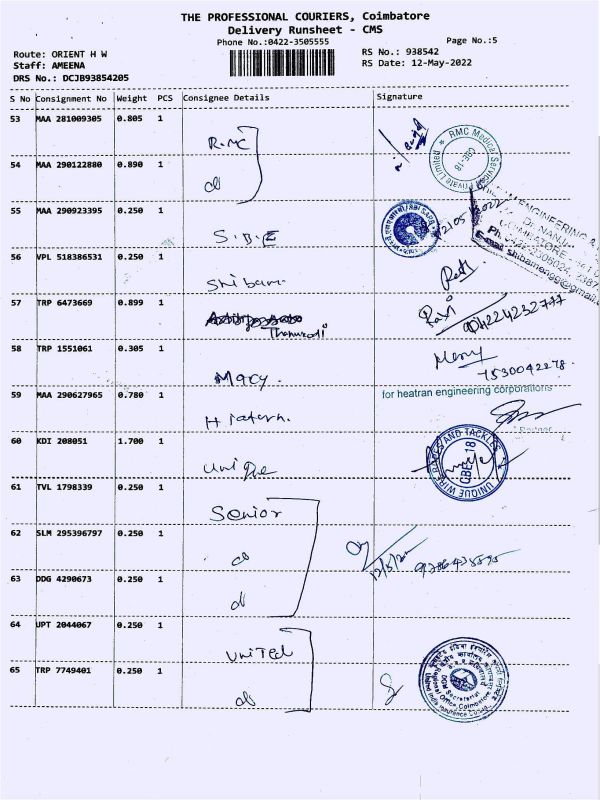 THE PROFESSIONAL COURIERS, Coimbatore
Delivery Runsheet - CMS
Phone No.:0422-3505555
Page No.:5
Route: ORIENT H W
Staff: AMEENA
DRS No.: DCJB93854205
RS No.: 938542
RS Date: 12-May-2022
S No Consignment No Weight PCS Consignee Details Signature
53 MAA 281009305 0.805 1 R.MC
RMC Medical Services Private Limited CBE-18
54 MAA 290122880 0.890 1 do
55 MAA 290923395 0.250 1 S.B.E
56 VPL 518386531 0.250 1 Shibam
57 TRP 6473669 0.899 1 Ravi 04224232777
58 TRP 1551061 0.305 1 Mercy 7530042278.
59 MAA 290627965 0.780 1
for heatran engineering corporations
60 KDI 208051 1.700 1 Unique
UNIQUE WIRE ROPES AND TACKLES CBE-18
61 TVL 1798339 0.250 1 Senior
62 SLM 295396797 0.250 1 do
63 DDG 4290673 0.250 1 do
64 UPT 2044067 0.250 1 UNITED
65 TRP 7749401 0.250 1 do